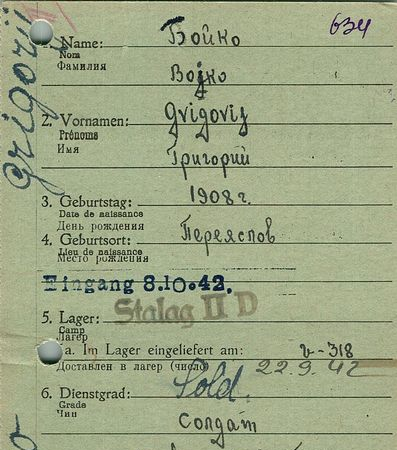 634
Grigorij
1. Name: Бойко
Nom
Фамилия Bojko
2. Vornamen: Grigorij
Prénoms
Имя Григорий
3. Geburtstag: 1908 г.
Date de naissance
День рождения
4. Geburtsort: Переяслов
Lieu de naissance
Место рождения
Eingang 8.10.42.
5. Lager: Stalag II D
Camp
Лагерь
a. Im Lager eingeliefert am: V-318
Доставлен в лагерь (число) 22.9.42
6. Dienstgrad: Sold.
Grade
Чин Солдат